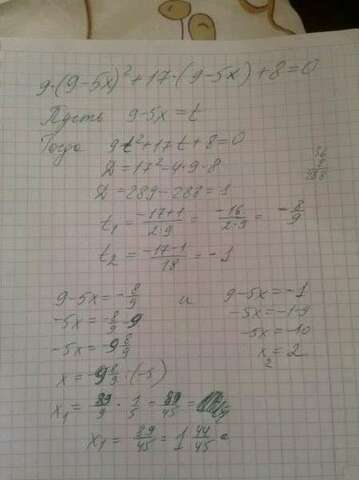 9·(9-5x)²+17·(9-5x)+8=0
Пусть 9-5x=t
Тогда 9t²+17t+8=0
D=17²-4·9·8
D=289-288=1
t₁=\frac{-17+1}{2·9}=\frac{-16}{2·9}=-\frac{8}{9}
t₂=\frac{-17-1}{18}=-1
9-5x=-\frac{8}{9} и 9-5x=-1
-5x=-\frac{8}{9}-9 -5x=-1-9
-5x=-9\frac{8}{9} -5x=-10
x=-9\frac{8}{9}:(-5) x₂=2
x₁=\frac{89}{9}·\frac{1}{5}=\frac{89}{45}=
x₁=\frac{89}{45}=1\frac{44}{45}